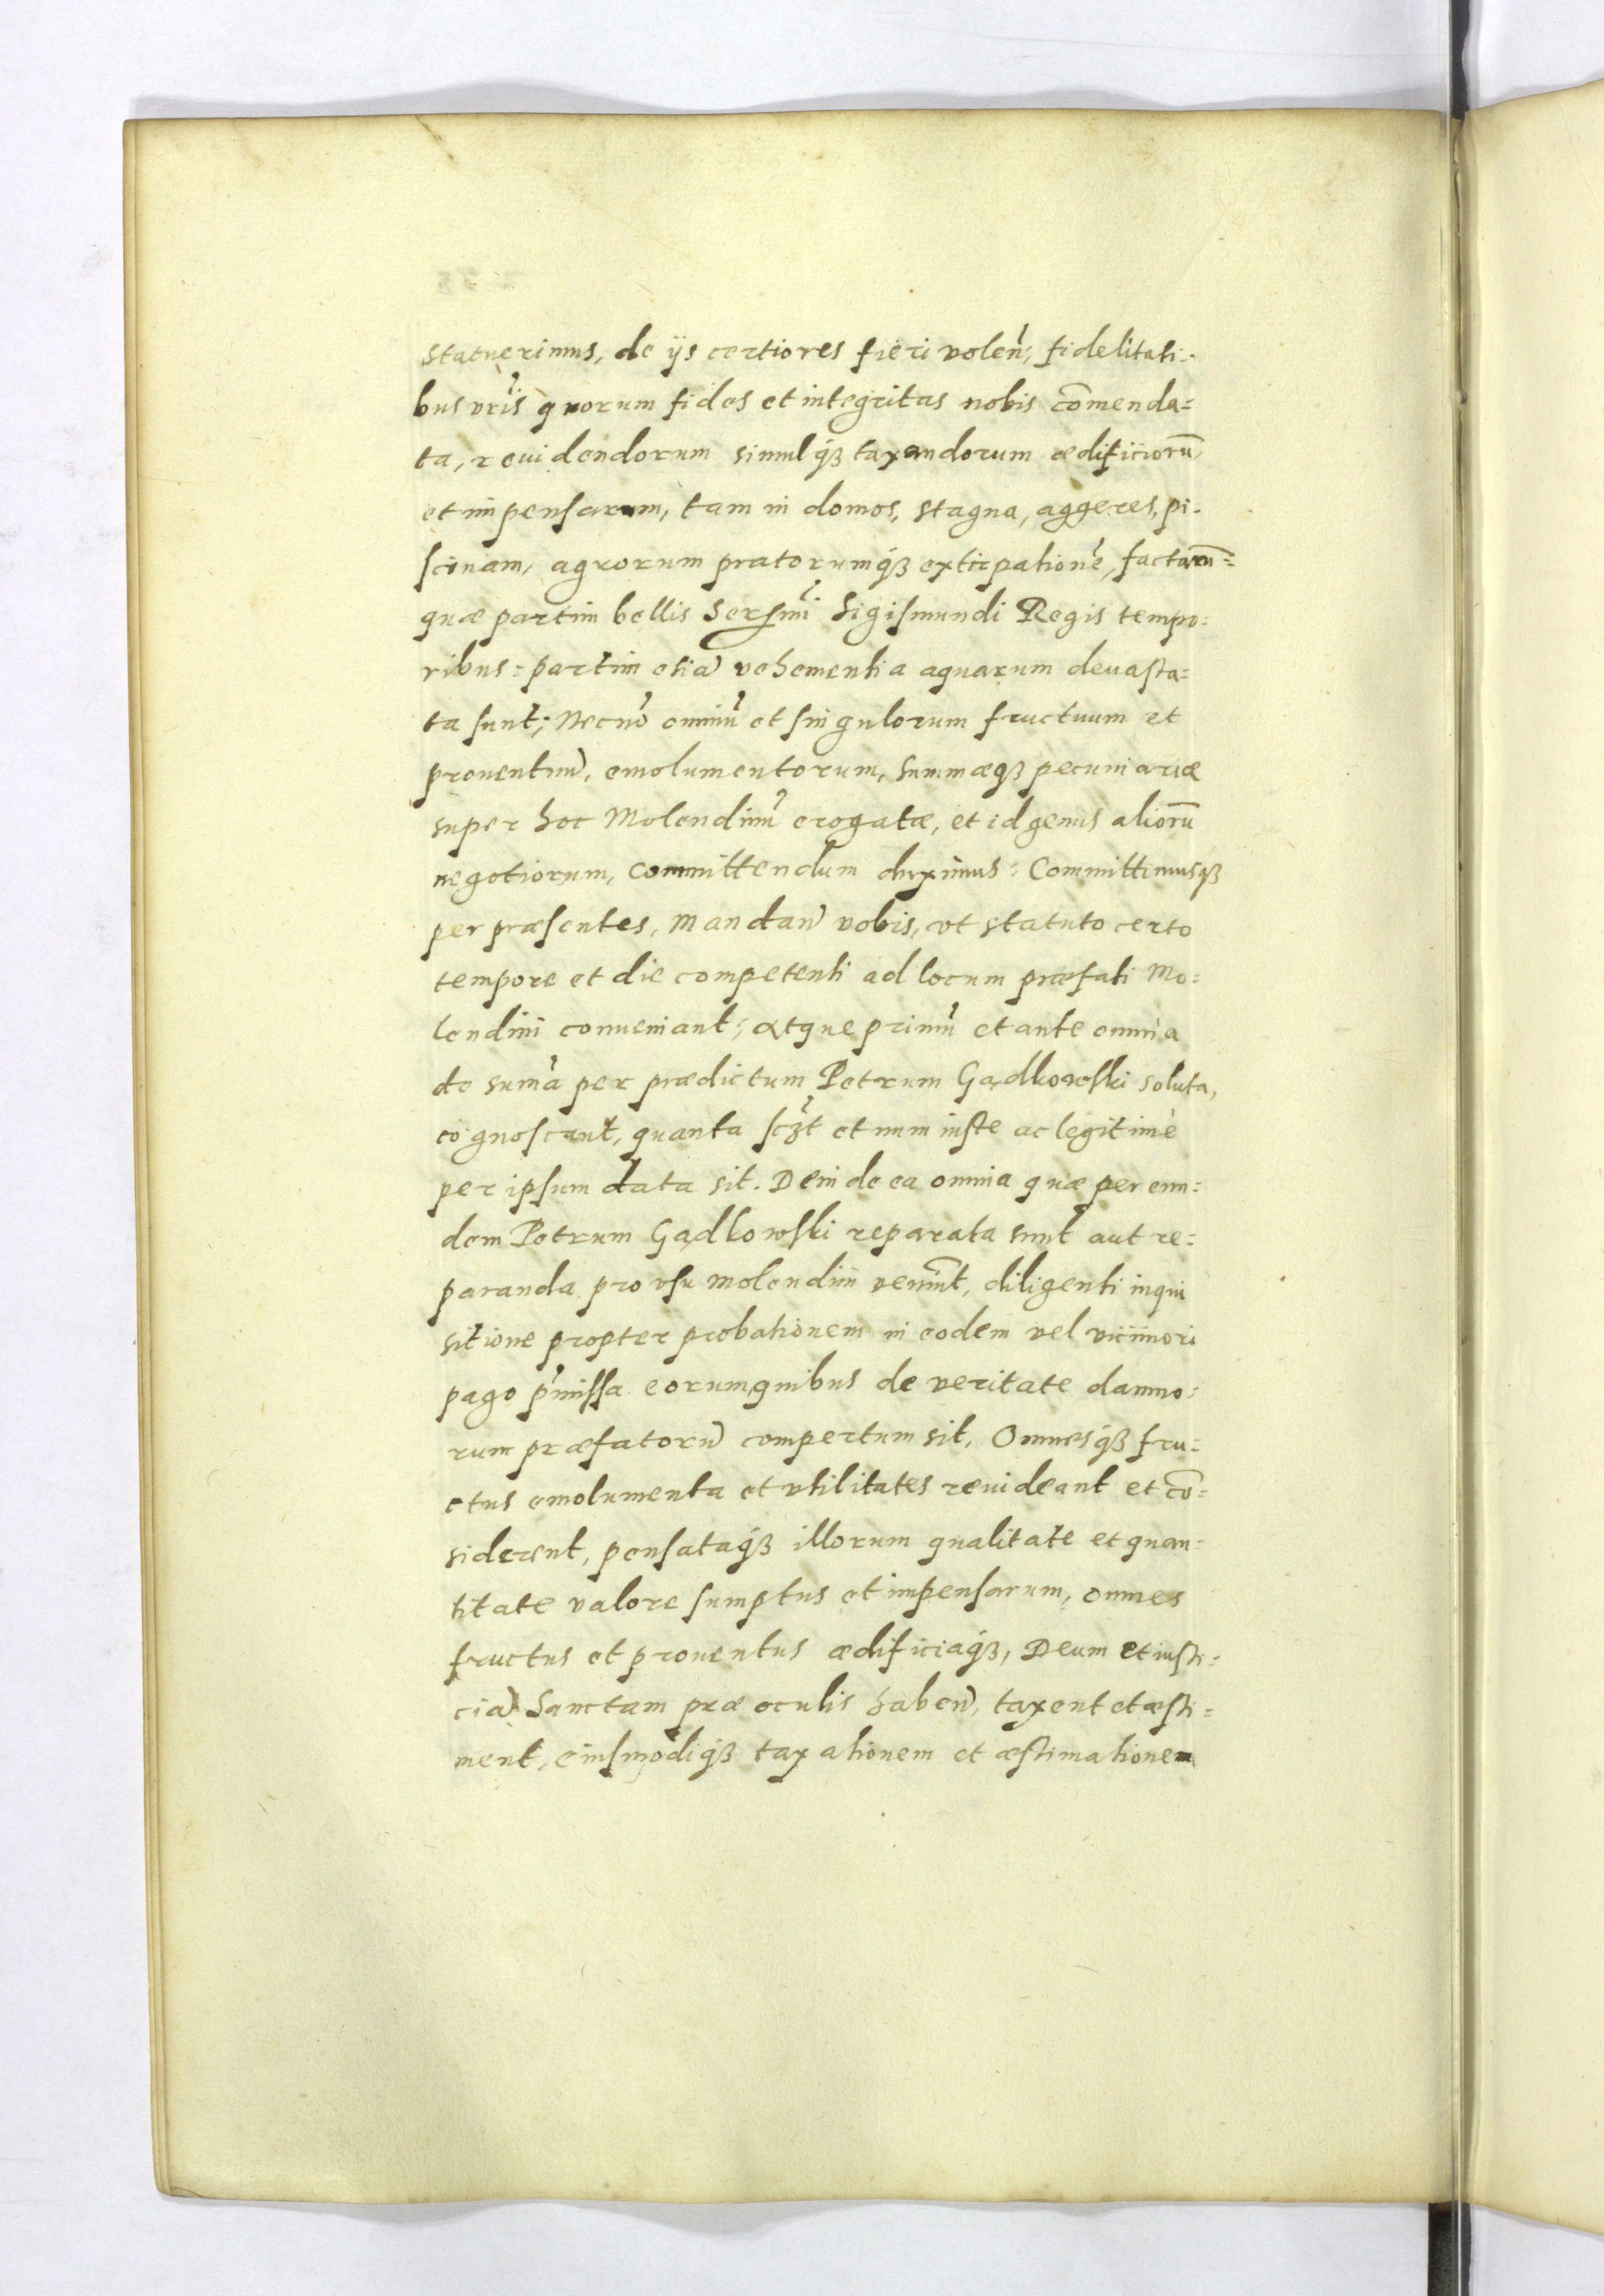 statuerimus, de ijs certiores fieri volen̄, fidelitati-
bus vr̄is quorum fides et integritas nobis com̄enda=
ta, reuidendorum simulq́ꝫ taxandorum ædificiorū
et impensarum, tam in domos, stagna, aggeres, pi-
scinam, agrorum pratorumq́ꝫ extirpatione᷆, factarū=
quæ partim bellis Serſmi Sigiſmundi Regis tempo=
ribus: partim etiā vehementia aquarum deuaſta=
ta ſunt; Necnō omniū et ſingulorum fructuum et
prouentuū, emolumentorum, summæqꝫ pecuniariæ
super hoc Molendinū erogatæ, et id genus aliorū
negotiorum, committendum duximus: Committimusqꝫ
per præſentes, mandan̄ vobis, vt statuto certo
tempore et die competenti ad locum præfati Mo=
lendini conueniant, atque primū et ante omnia
de sum̄a per prædictum Petrum Gądkowſki soluta,
cognoſcant, quanta ſcꝫt et num iuſte ac legitimè
per ipſum data sit. Deinde ea omnia quæ per eun=
dem Petrum Gądkowſki reparata sunt aut re=
paranda pro vſu molendini veniūt, diligenti inqui
sitione propter probationem in eodem vel viciniori
pago p̄miſſa eorum quibus de veritate damno=
rum præfatorū compertum sit, Omnesq́ꝫ fru=
ctus emolumenta et vtilitates reuideant et cō=
siderent, penſataq́ꝫ illorum qualitate et quan=
titate valore ſumptus et impenſarum, omnes
fructus et prouentus ædificiaq́ꝫ, Deum et iuſti=
ciā Sanctam præ oculis haben̄, taxent et æſti=
ment, eiuſmodiq́ꝫ taxationem et æſtimationem